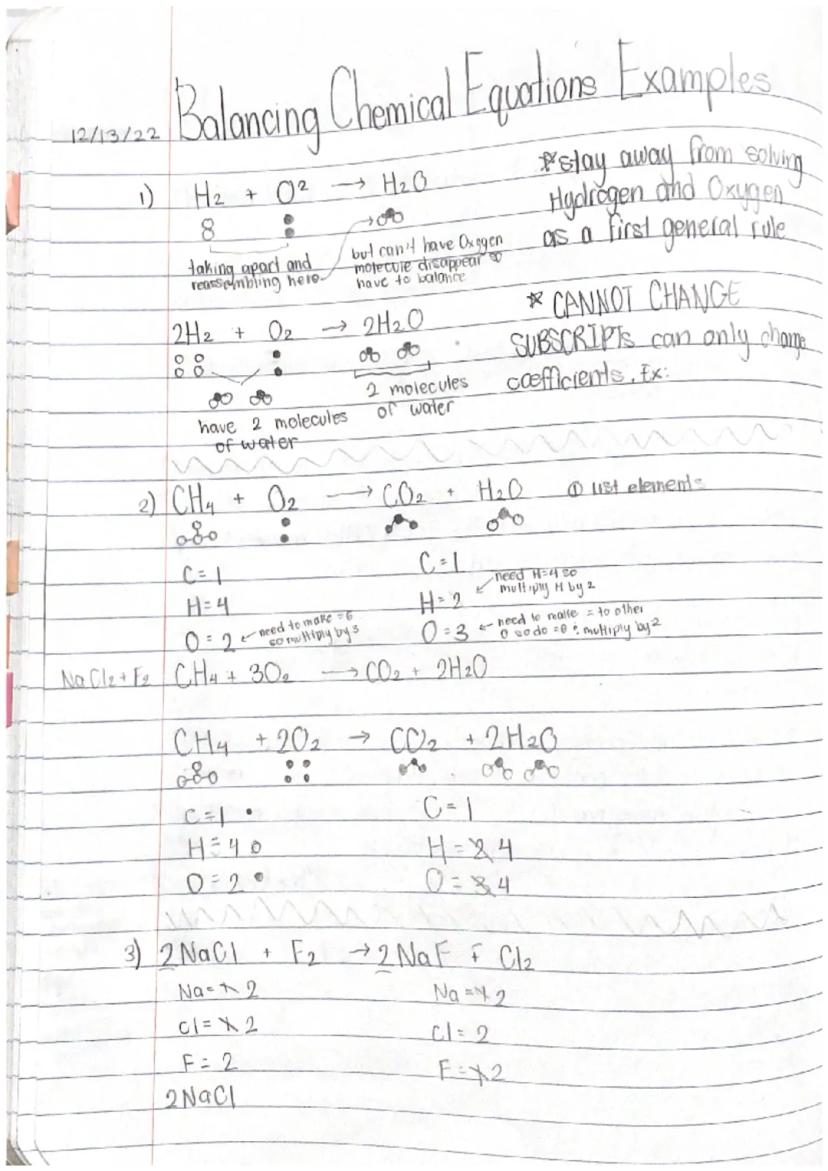 Balancing Chemical Equations Examples
12/13/22
1) H₂ + O² → H₂O
taking apart and
reassembling here
but can't have Oxygen
molecule disappear
have to balance
*stay away from solving
Hydrogen and Oxygen
as a first general rule
2H₂ + O₂ → 2H₂O
have 2 molecules
of water
2 molecules
of water
* CANNOT CHANGE
SUBSCRIPTs can only change
coefficients. Ex:
2) CH₄ + O₂ → CO₂ + H₂O ① list elements
C=1 C=1
H=4 H=2 need H=4 so
multiply H by 2
O=2 need to make =6
so multiply by 3
O=3 need to make = to other
O so do =6 ∴ multiply by 2
NaCl₂+F₂ CH₄ + 3O₂ → CO₂ + 2H₂O
CH₄ + 2O₂ → CO₂ + 2H₂O
C=1 C=1
H=4 H=2 4
O=2 O=3 4
3) 2NaCl + F₂ → 2NaF + Cl₂
Na=1 2 Na=1 2
Cl=1 2 Cl=2
F=2 F=1 2
2NaCl